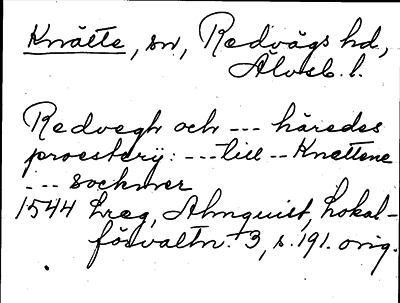 Knätte, sn, Redvägs hd,
Älvsb. l.
Redvegh och --- häredes
proestery: --- till -- Knettene
--- sochner
1544 Lreg, Almquist, Lokal-
förvaltn. 3, s. 191. orig.